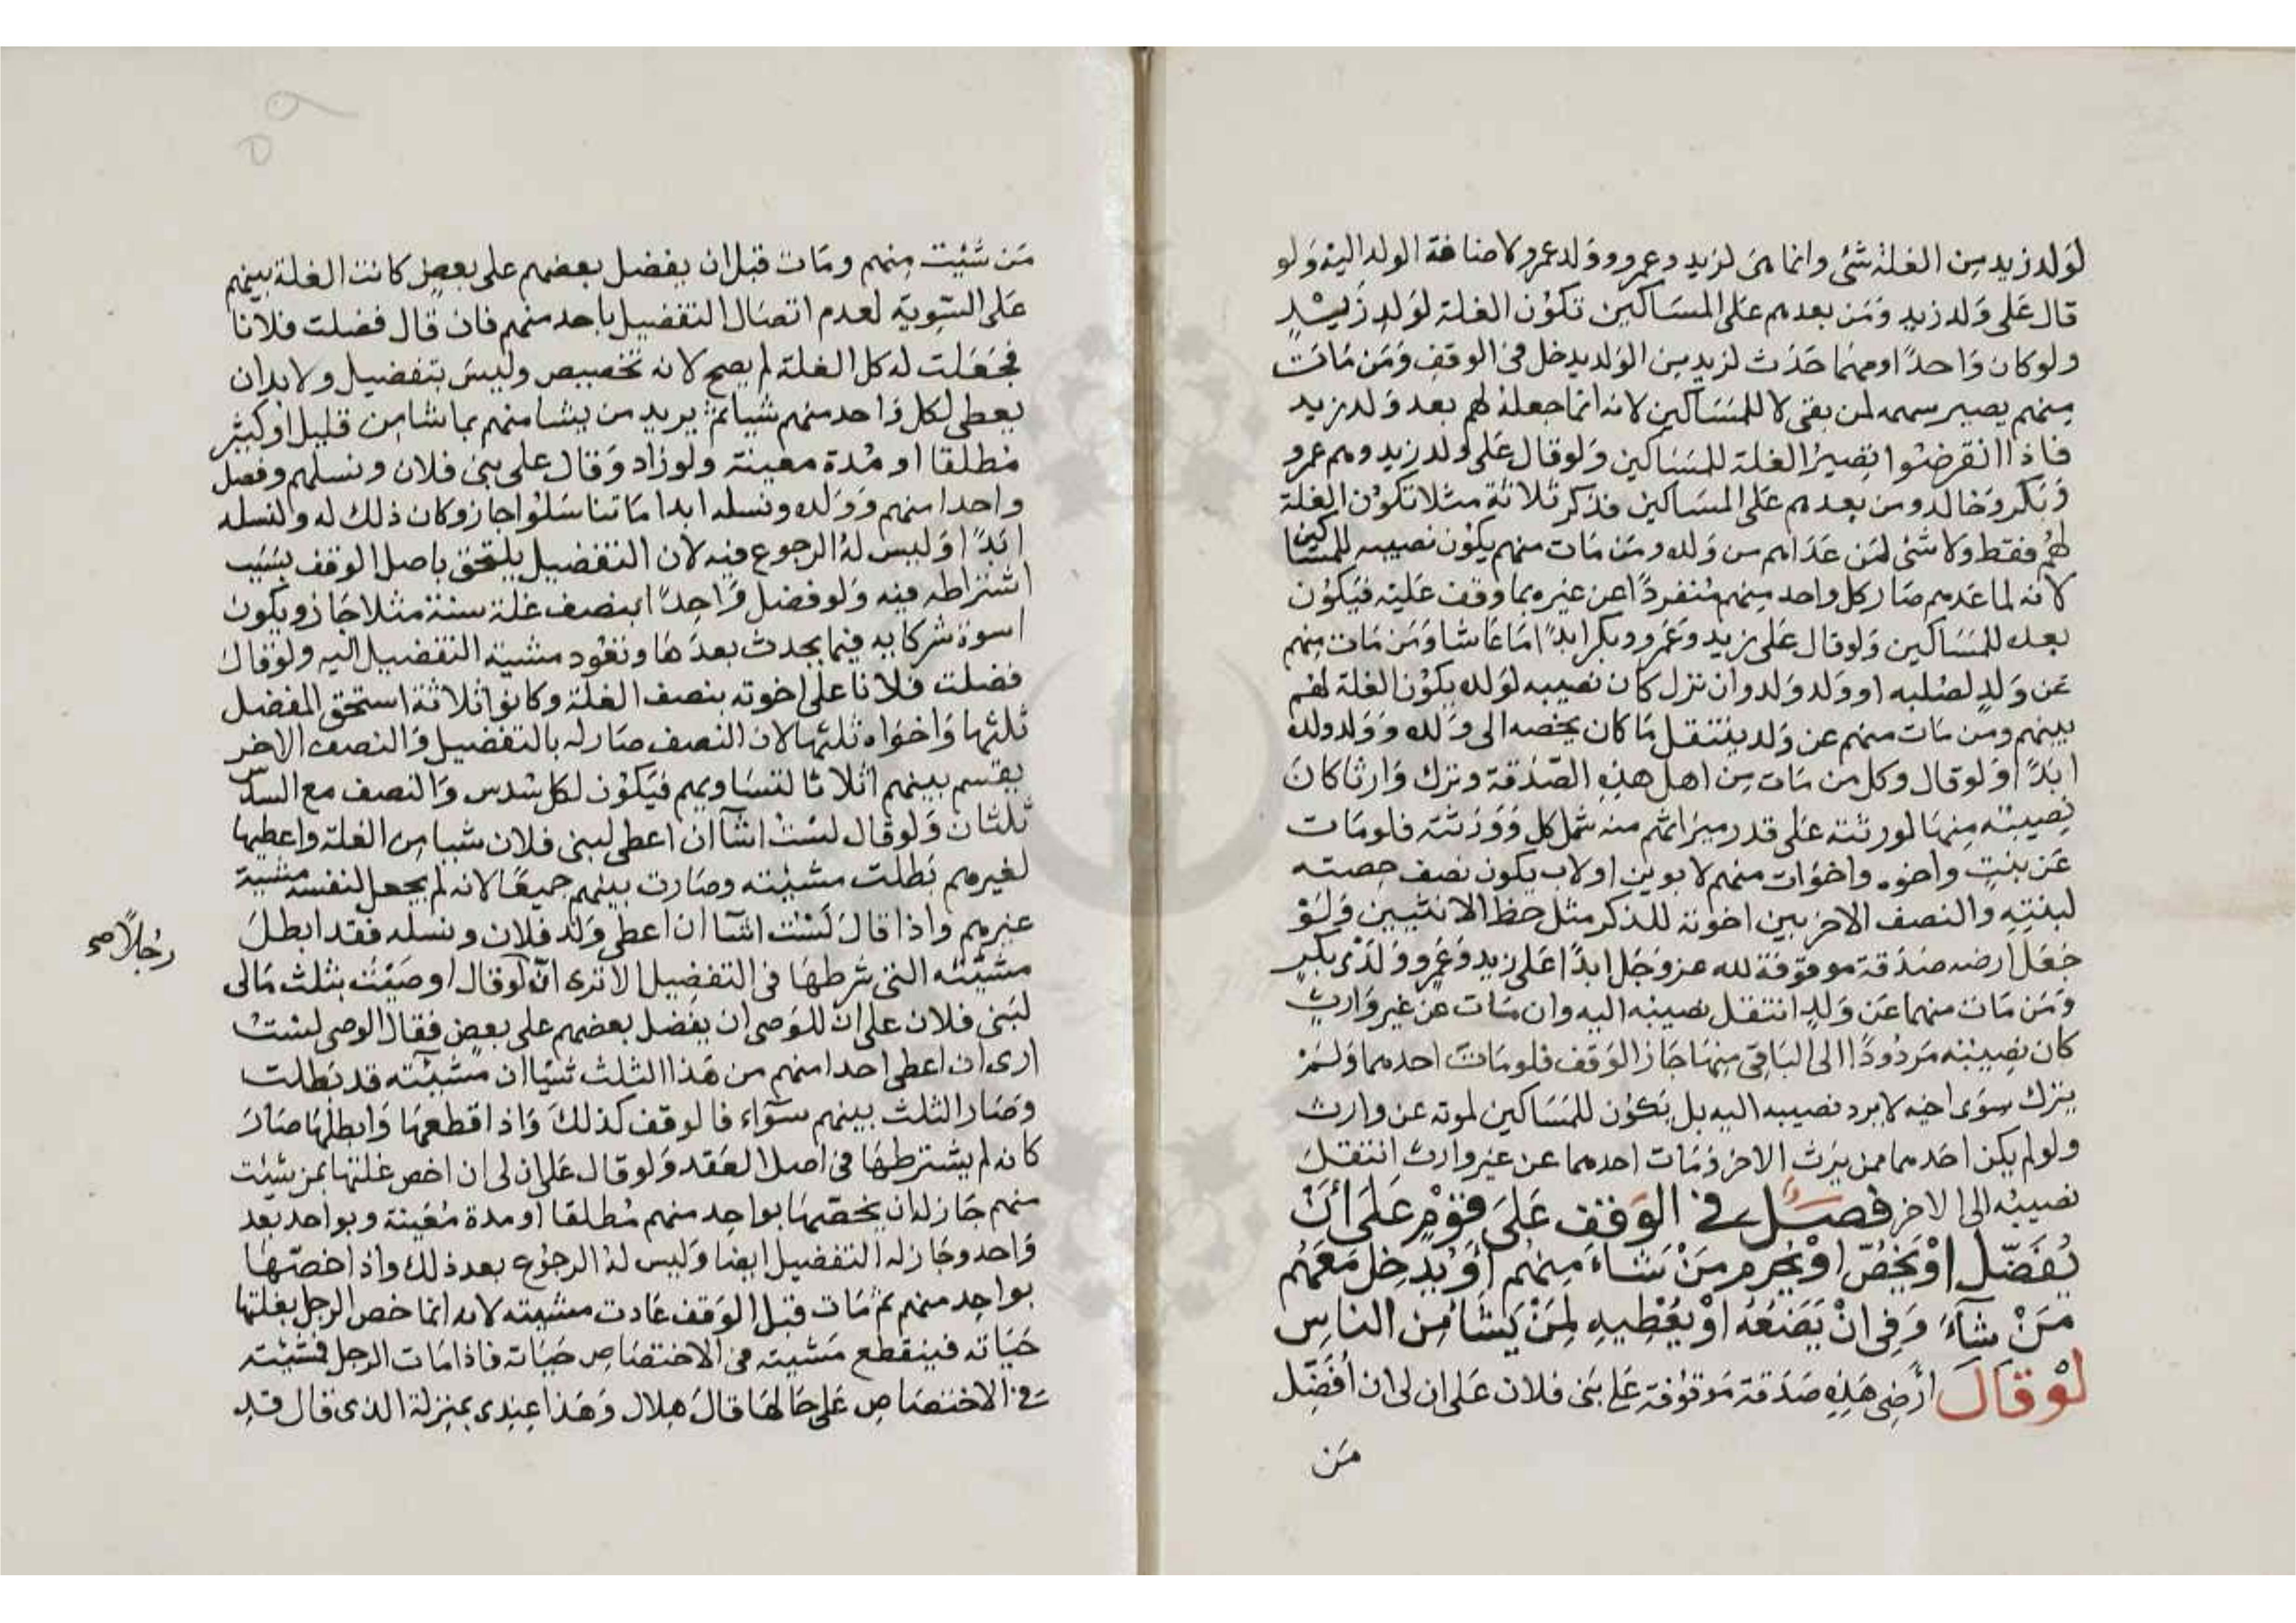 لوَلد زيد من الغلة شئ وانما هى لزيد وعمرو وولد عمرو لاضافة الولد اليه وَلو
قال عَلى وَلد زيد وَمَن بعدهم عَلى المسَاكين تكوُن الغلة لوَلدِ زَيْدٍ
ولو كان وَاحدًا ومهما حَدَث لزيد من الوَلد يدخل فى الوقف وَمَن مَات
منهم يصير سهمه لمن بقى لا للمسَاكين لانه انما جعله لهم بعد وَلد زيد
فاذا انقرضُوا تصيرُ الغلة للمسَاكين وَلو قال عَلى ولد زيد وهم عمرو
وَبكر وَخالد ومن بعدهم عَلى المسَاكين فذكر ثلاثة مثلا تكوُن الغلة
لهُم فقط ولا شئ لمَن عَدَاهم من وَلده ومَن مَات منهم يكوُن نصيبه للمسَاكين
لانه لما عَدهم صَار كل واحد منهم مُنفردًا عن غيره بما وقف عَليْه فيَكوُن
بعده للمسَاكين وَلو قال عَلى زيد وَعَمرو وبكر ابدًا مَا عَاشا وَمَن مَات منهم
عَن وَلدٍ لصُلبه او ولد وَلد وان نزل كان نصيبه لوَلده يكوُن الغلة لهُم
بينهم ومن مَات منهم عن وَلد ينتقل مَا كان يخصه الى وَلده وَوَلد ولده
ابَدًا وَلو قال وكل من مَات من اهل هذِه الصّدقة وترك وَارثا كانَ
نصيبَه منهَا لورثته عَلى قدر ميرَاثهم منه شمل كل وَوَرَثته فلو مَات
عَن بنتٍ واخوه واخوَات منهم لابوين اولاب يكون نصف حصته
لبنتِهِ والنصف الاخر بين اخوته للذكر مثل حظ الانثيين وَلَوْ
جَعَل ارضه صَدَقة موقوَفة لله عز وجَل ابدًا عَلى زيد وعَمرو وولدَىْ بكرٍ
وَمَن مَات منهما عَن وَلدٍ انتقل نصيبه اليه وان مَات عَن غير وَارثٍ
كان نصيبَه مَردُودًا الى البَاقى منهَا جَاز الوَقف فلو مَات احدهما وَلمْ
يترك سِوَى اخيه لا يرد نصيبه اليه بل يَكوُن للمسَاكين لموته عن وارث
ولو لم يكن احَدهما ممن يَرث الاخر وَمَات احدهما عن غير وارث انتقل
نصيبُه الى الاخر فصل فى الوَقف عَلىَ قوْمٍ عَلىَ أنْ
يُفَضّل اوْ يَخُصّ اوْ يَحْرِم مَنْ شاءَ مِنهُم أوْ يُدخِل مَعَهُم
مَنْ شآءَ وَفى انْ يَضَعَهُ اوْ يُعْطِيه لِمَنْ يَشَا مِن الناسِ
لوْ قالَ أرْضِى هَذِه صَدَقة مَوقوُفة عَلى بَنى فلان عَلى ان لى ان أُفَضِّل
مَن
مَن شئت منهم ومَات قبل ان يفضل بعضهم على بعضٍ كانت الغلة بينهم
عَلى السّوية لعدم اتصَال التفضيل باحد منهم فان قال فضلت فلانا
فجَعَلت له كل الغلة لم يصح لانه تخصيص وليسَ بتفضيل ولا بد ان
يعطى لكل وَاحد منهم شيا ثم يزيد من يشا منهم بما شا من قليل اوكثير
مُطلقا او مُدة معينة ولو زاد وَقال على بنى فلان ونسلهم وفضل
واحدا منهم وَوَلده ونسله ابدا مَا تناسَلوُا جاز وكان ذلك له ولنسله
ابَدًا وَليس لهُ الرجوع فيه لان التفضيل يلتحق باصل الوقف بسَبب
اشتراطه فيه وَلو فضل وَاحِدًا بنصف غلة سنة مثلا جَاز ويكون
اسوة شركايه فيما يحدث بعدَهَا وتعوُد مشية التفضيل اليه ولو قال
فضلت فلانا على اخوته بنصف الغلة وكانوا ثلاثة استحق المفضل
ثلثيها وَاخوَاه ثلثها لان النصف صَار له بالتفضيل وَالنصف الاخر
يقسم بينهم اثلاثا لتسَاويهم فيَكوُن لكل سُدس وَالنصف مع السدس
ثلثان وَلو قال لسْتُ اشآ ان اعطى لبنى فلان شيا من الغلة واعطيها
لغيرهم بَطلت مشيته وصَارت بينهم جميعًا لانه لم يجعل لنفسه مشية
غيرهم واذا قال لَسْت اشآ ان اعطى وَلد فلان ونسله فقد ابطلَ
مشيّته التى شرطهَا فى التفضيل الا ترى انّ لو قال اوصَيْتُ بثلث مَالى
لبَنى فلان على انّ للوَصى ان يفضل بعضهم على بعضٍ فقال الوصى لسْتُ
ارى ان اعطى احدا منهم من هَذا الثلث شيّا ان مشيّته قد بَطلت
وصَار الثلث بينهم سوَآء فالوقف كذلكَ وَاذا قطعهَا وَابطلهَا صَارَ
كانه لم يشترطهَا فى اصل العَقد وَلو قال عَلى ان لى ان اخص غلتها بمن شئت
منهم جَاز له ان يخصّهَا بواحِد منهم مُطلقا او مدة مُعينة وبواحد بعد
وَاحد وجَاز له التفضيل ايضا وَليس لهُ الرجوُع بعد ذلك واذا خصّهَا
بواحِد منهم ثم مَات قبل الوَقف عَادت مشيته لانه انما خص الرجل بغلتها
حَيَاته فينقطع مَشيته فى الاختصَاص حَيَاته فاذا مَات الرجل فمشيّته
فى الاختصَاص عَلى حَالهَا قالَ هِلال وَهَذا عِندى بمنزلة الذى قال قد
رجُلاً صح